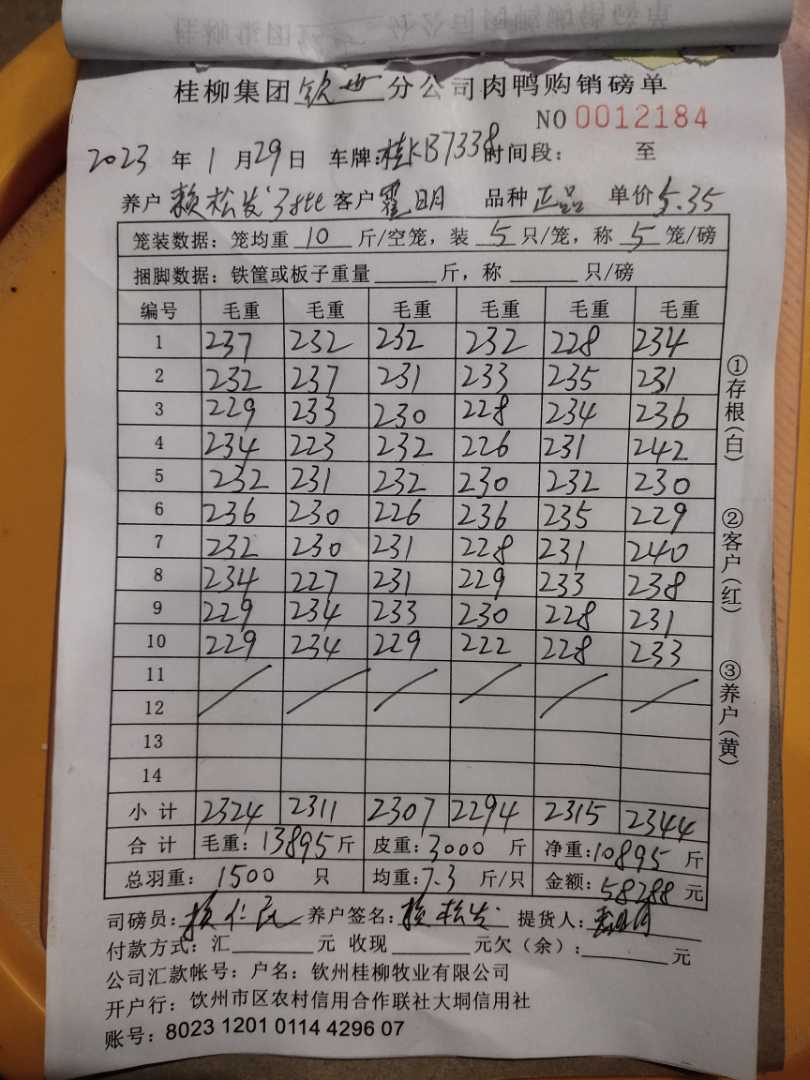 桂柳集团钦州分公司肉鸭购销磅单
NO 0012184
2023 年 1 月 29 日 车牌:桂KB7338 时间段: 至
养户 赖松发 客户 霍明 品种 正品 单价 5.35
笼装数据:笼均重 10 斤/空笼,装 5 只/笼,称 5 笼/磅
捆脚数据:铁筐或板子重量 斤,称 只/磅
编号 毛重 毛重 毛重 毛重 毛重 毛重
1 237 232 232 232 228 234
2 232 237 231 233 235 231
3 229 233 230 228 234 236
4 234 223 232 226 231 242
5 232 231 232 230 232 230
6 236 230 226 236 235 229
7 232 230 231 228 231 240
8 234 227 231 229 233 238
9 229 234 233 230 228 231
10 229 234 229 222 228 233
11
12
13
14
小计 2324 2311 2307 2294 2315 2344
合计 毛重:13895 斤 皮重:3000 斤 净重:10895 斤
总羽重:1500 只 均重:7.3 斤/只 金额:58288 元
司磅员: 养户签名:赖松发 提货人:
付款方式:汇 元 收现 元欠(余): 元
公司汇款帐号:户名:钦州桂柳牧业有限公司
开户行:钦州市区农村信用合作联社大垌信用社
账号:8023 1201 0114 4296 07
①存根(白)
②客户(红)
③养户(黄)